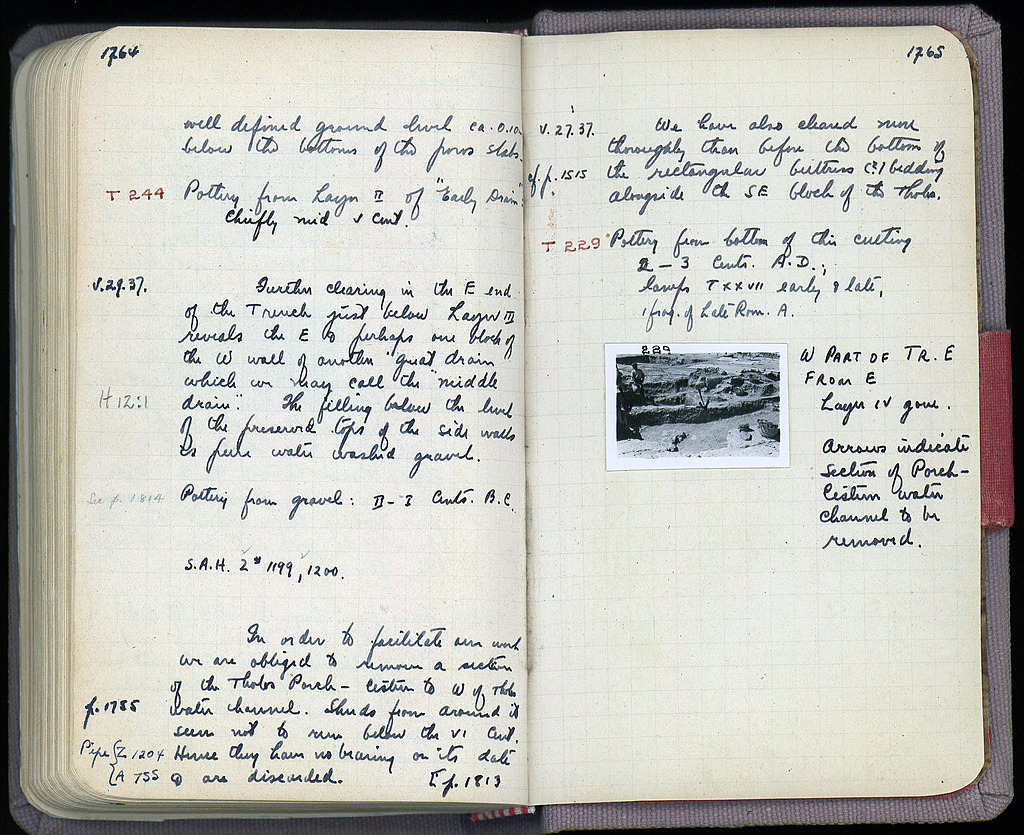 1764
well defined ground level ca. 0.10
below the bottoms of the poros slabs.
T 244 Pottery from Layer II of "Early Drain":
Chiefly mid V Cent.
V.29.37. Further clearing in the E end
of the Trench just below Layer III
reveals the E & perhaps one block of
the W wall of another "great drain"
which we may call the "middle
H 12:1 drain". The filling below the level
of the preserved tops of the side walls
is pure water washed gravel.
See p. 1814 Pottery from gravel: II - I Cents. B.C.
S.A.H. 2 1199, 1200.
In order to facilitate our work
we are obliged to remove a section
of the Tholos Porch - Cistern to W of Tholos
p. 1755 water channel. Sherds from around it
seem not to run below the VI Cent.
Pipe { Z 1204 Hence they have no bearing on its date
{ A 755 & are discarded. [p. 1813
1765
V. 27.37. We have also cleared more
thoroughly than before the bottom of
cf. p. 1515 the rectangular buttress (?) bedding
alongside the SE block of the Tholos.
T 229 Pottery from bottom of this cutting
2 - 3 Cents. A.D.;
lamps T XXVII early & late,
1 frag. of Late Rom. A.
289
W PART OF TR. E
FROM E
Layer IV gone.
Arrows indicate
section of Porch-
Cistern water
channel to be
removed.